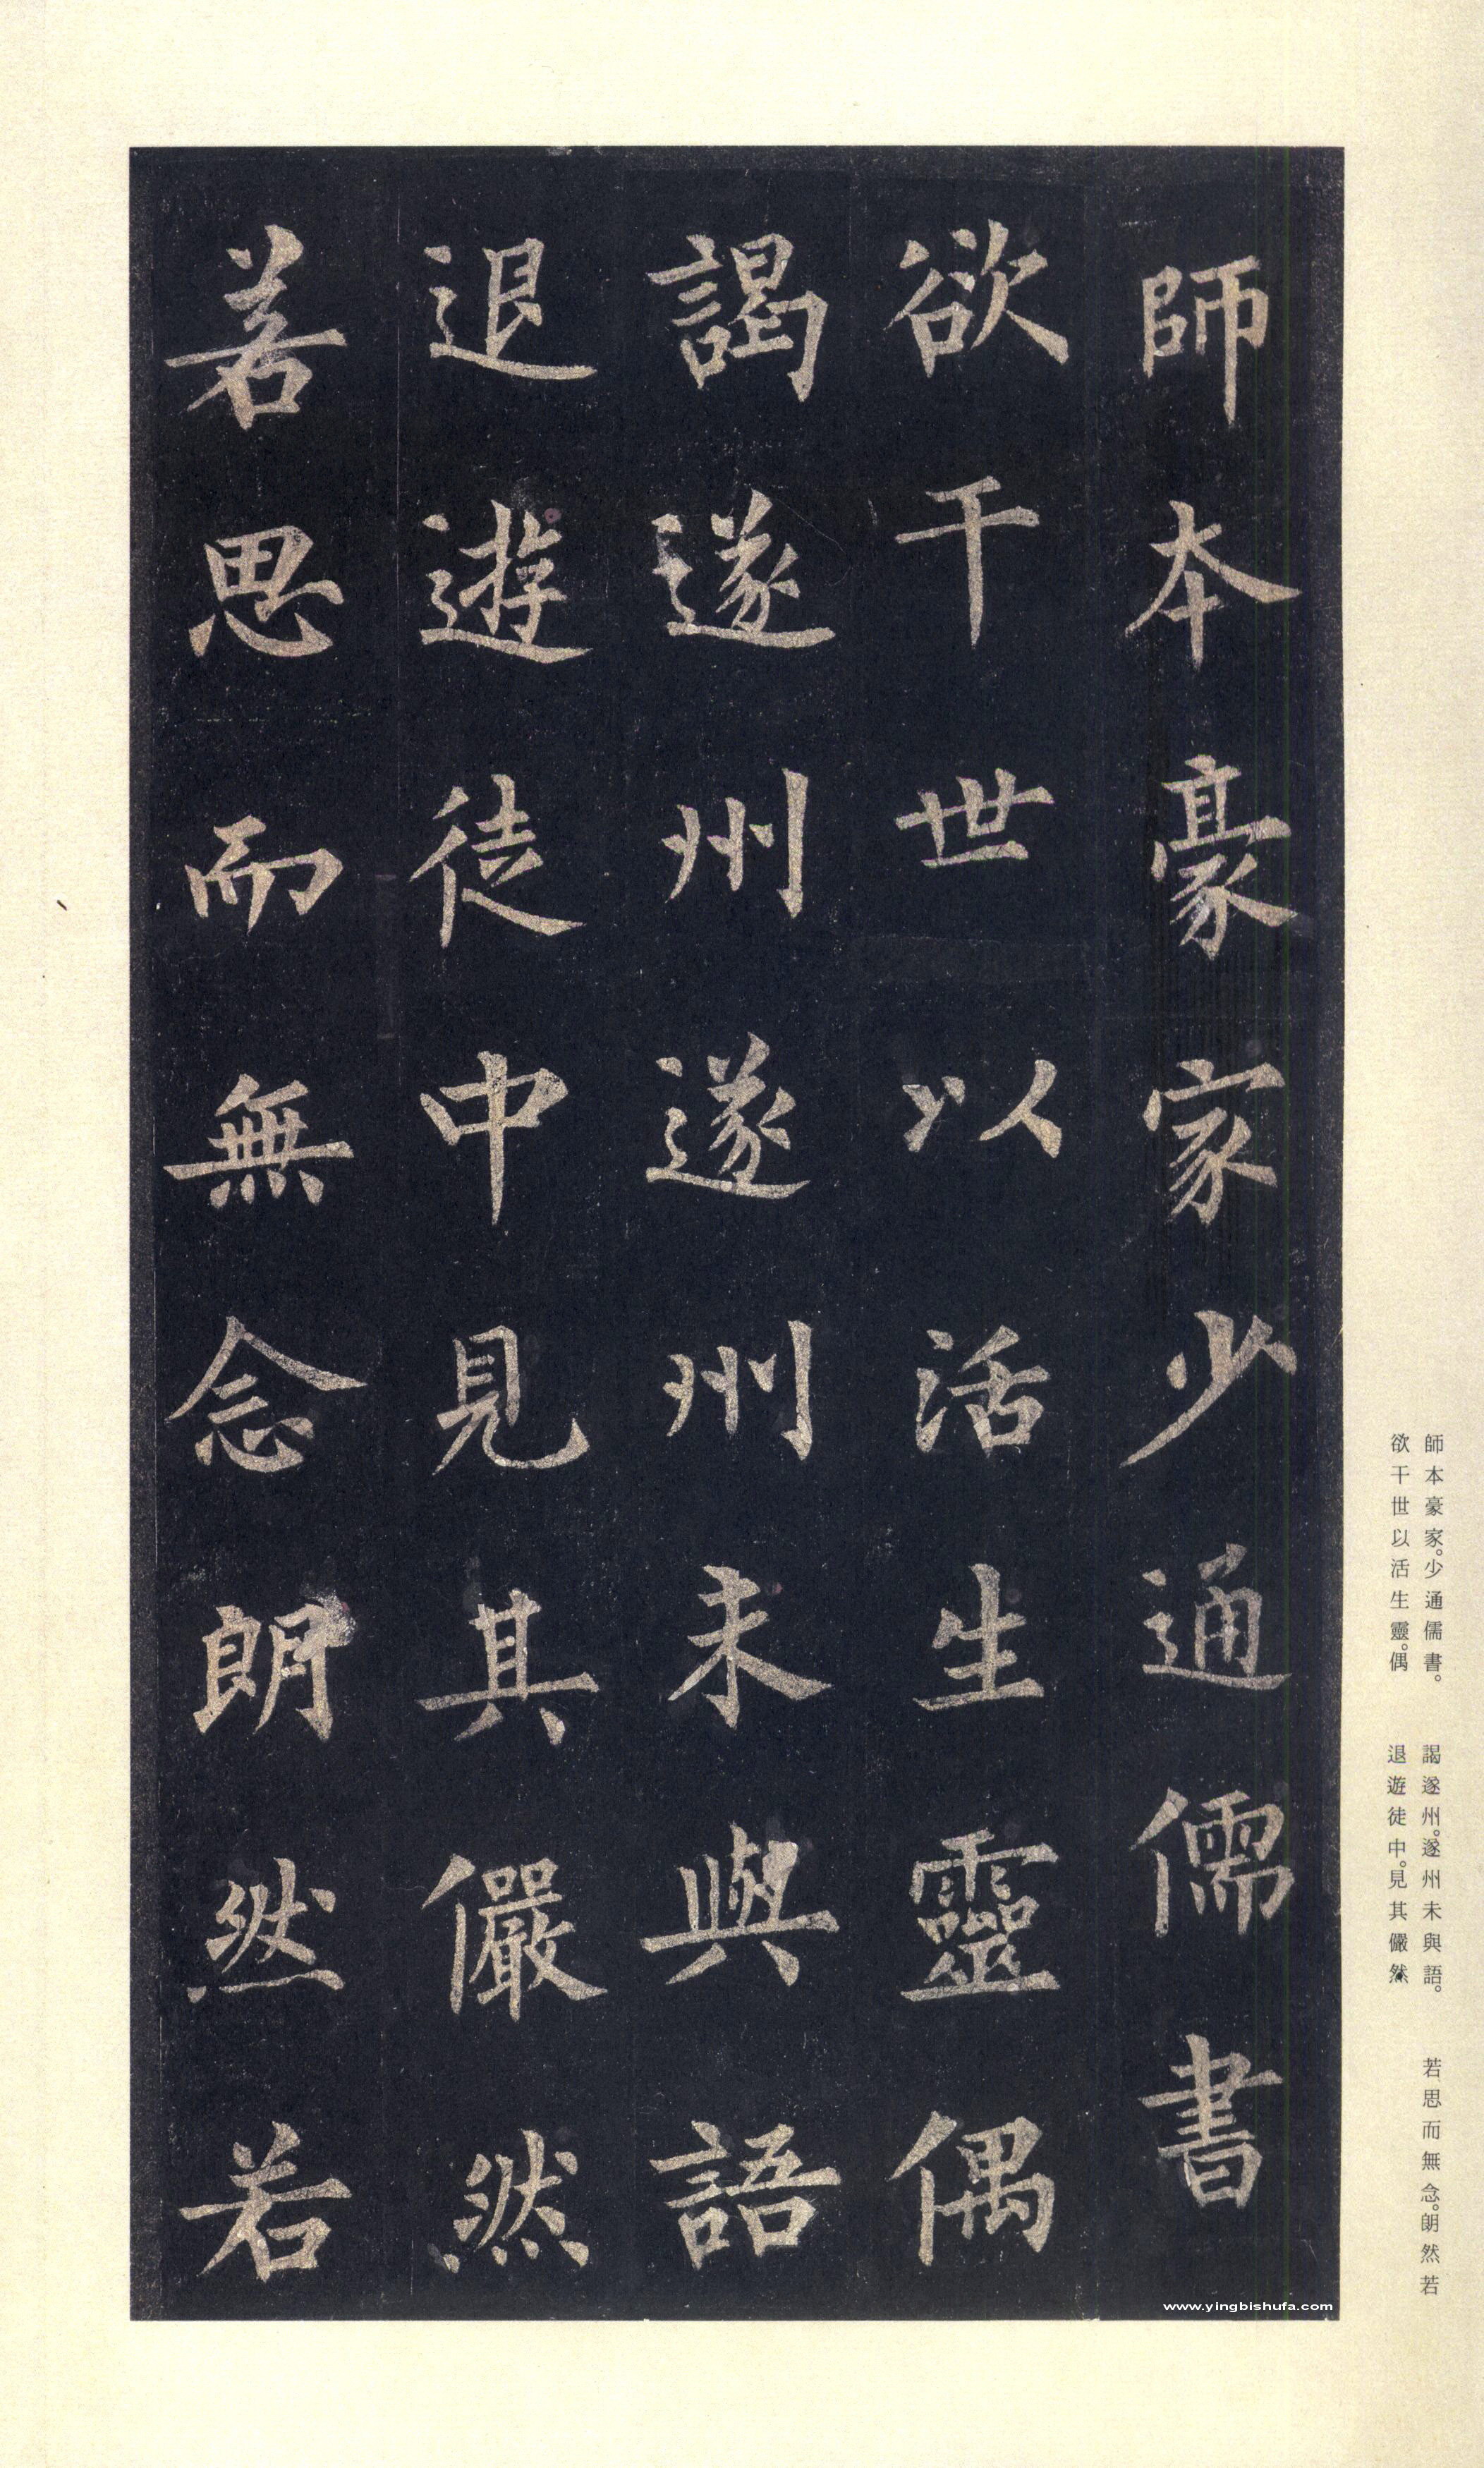 師本豪家少通儒書
欲干世以活生靈偶
謁遂州遂州未與語
退遊徒中見其儼然
若思而無念朗然若
師本豪家。少通儒書。
欲干世以活生靈。偶
謁遂州。遂州未與語。
退遊徒中。見其儼然
若思而無念。朗然若
www.yingbishufa.com